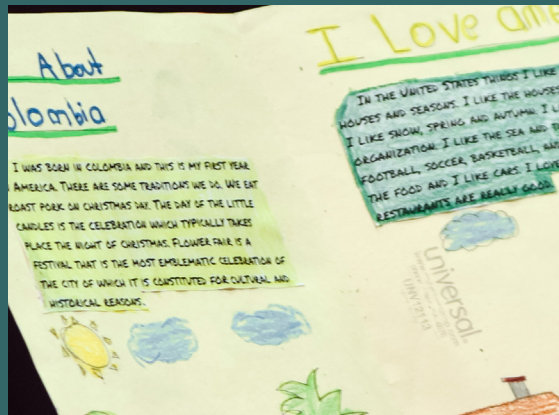 About
olombia
I WAS BORN IN COLOMBIA AND THIS IS MY FIRST YEAR
AMERICA. THERE ARE SOME TRADITIONS WE DO. WE EAT
ROAST PORK ON CHRISTMAS DAY. THE DAY OF THE LITTLE
CANDLES IS THE CELEBRATION WHICH TYPICALLY TAKES
PLACE THE NIGHT OF CHRISTMAS. FLOWER FAIR IS A
FESTIVAL THAT IS THE MOST EMBLEMATIC CELEBRATION OF
THE CITY OF WHICH IT IS CONSTITUTED FOR CULTURAL AND
HISTORICAL REASONS.
I Love ame
IN THE UNITED STATES THINGS I LIKE
HOUSES AND SEASONS. I LIKE THE HOUSES
I LIKE SNOW, SPRING AND AUTUMN. I L
ORGANIZATION. I LIKE THE SEA AND
FOOTBALL, SOCCER, BASKETBALL, AND
THE FOOD AND I LIKE CARS. I LOVE
RESTAURANTS ARE REALLY GOOD.
universal
UNV-2113